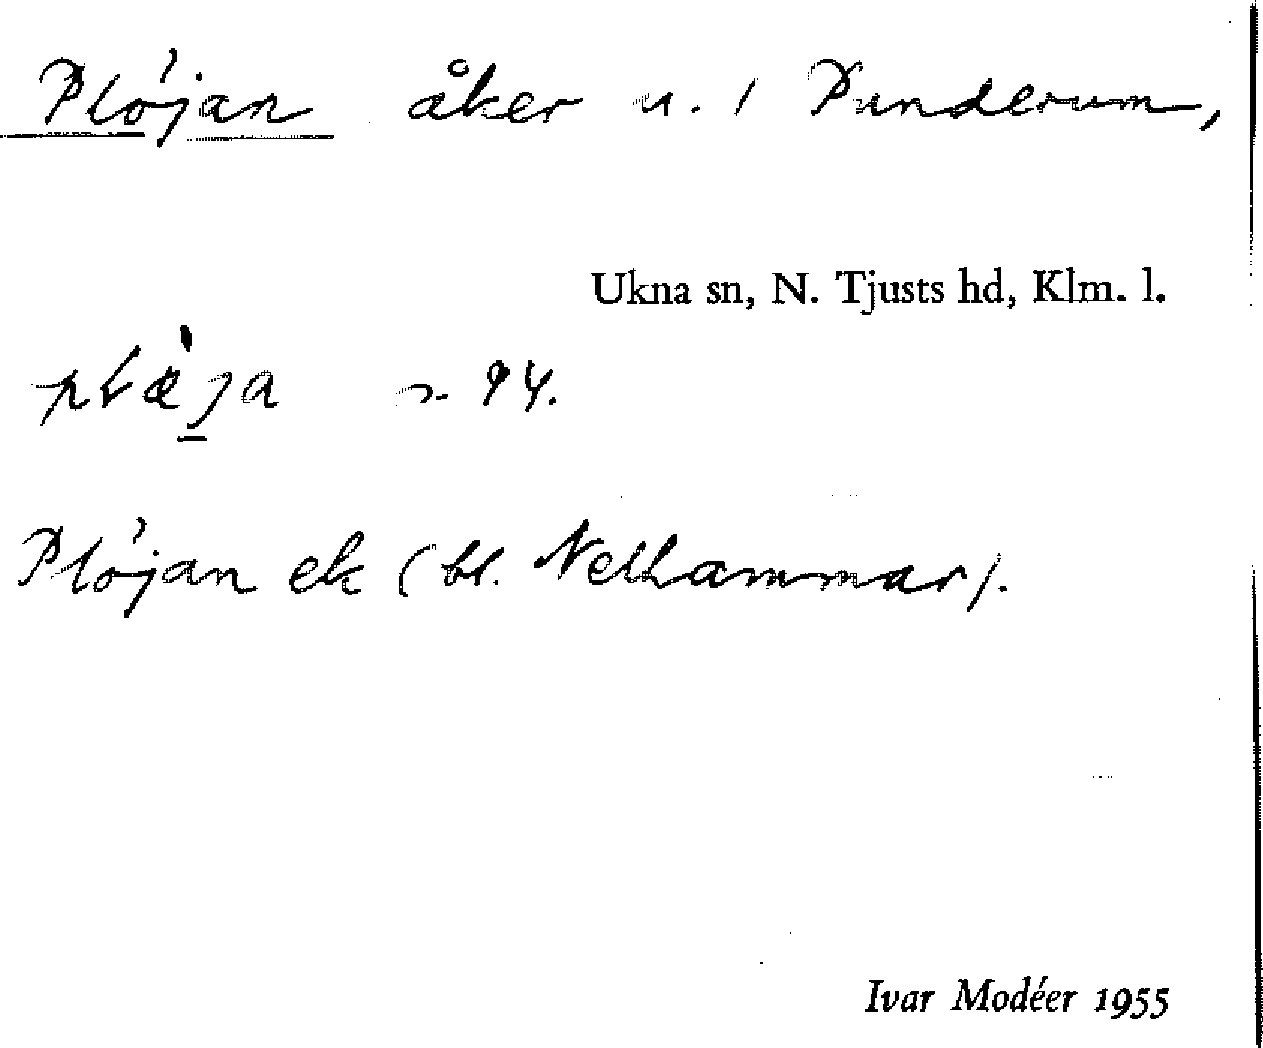 Plöjan åker u. / Punderum,
Ukna sn, N. Tjusts hd, Klm. l.
94.
Plöjan ek (bl. Nelhammar).
Ivar Modéer 1955